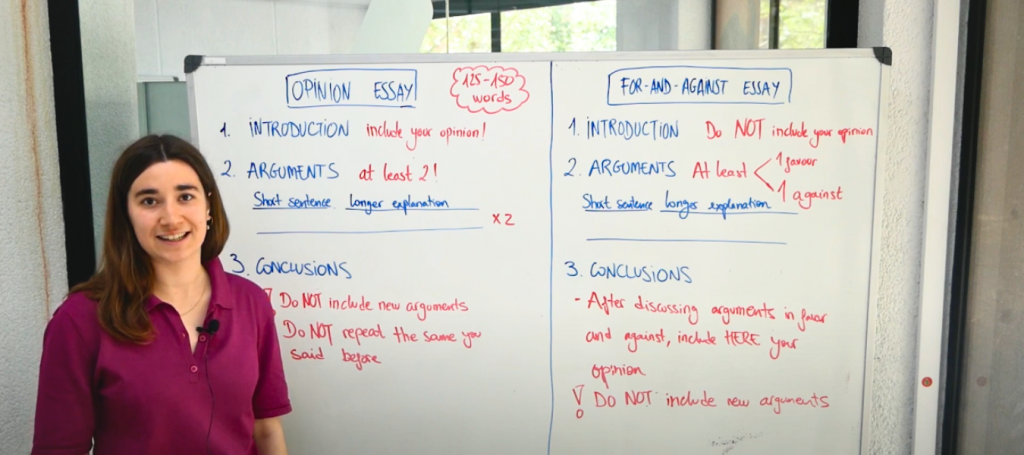 OPINION ESSAY
125-150
words
1. INTRODUCTION include your opinion!
2. ARGUMENTS at least 2!
Short sentence longer explanation
x2
3. CONCLUSIONS
! Do NOT include new arguments
Do NOT repeat the same you
said before
FOR-AND-AGAINST ESSAY
1. INTRODUCTION Do NOT include your opinion
2. ARGUMENTS At least 1 favour
1 against
Short sentence longer explanation
3. CONCLUSIONS
- After discussing arguments in favor
and against, include HERE your
opinion
! Do NOT include new arguments